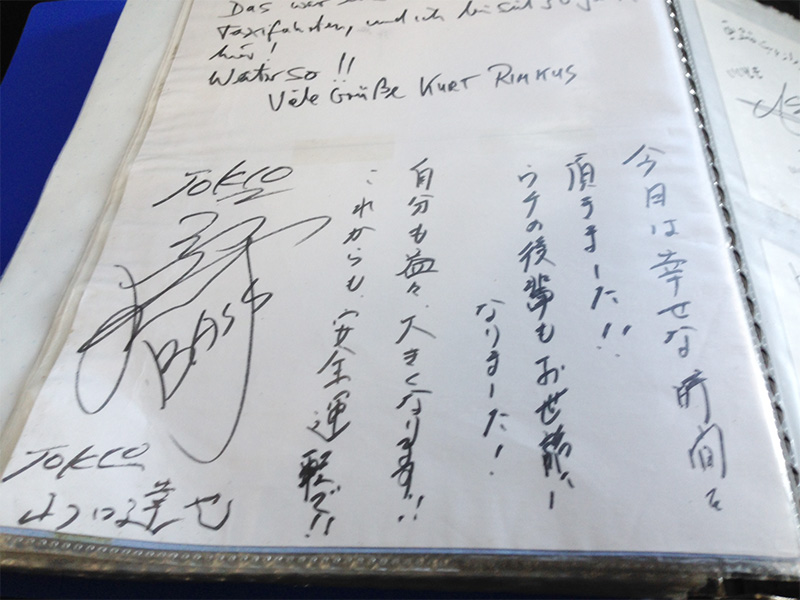 Das war
Taxifahrten, und ich bin seit 30
hier!
Weiter so!!
Viele Grüße KURT RIMKUS
今日は幸せな時間を
頂きました!!
ウチの後輩もお世話に
なりました!
自分も益々、大きくなります!!
これからも、安全運転で!!
TOKYO
BASS
TOKYO
幸也